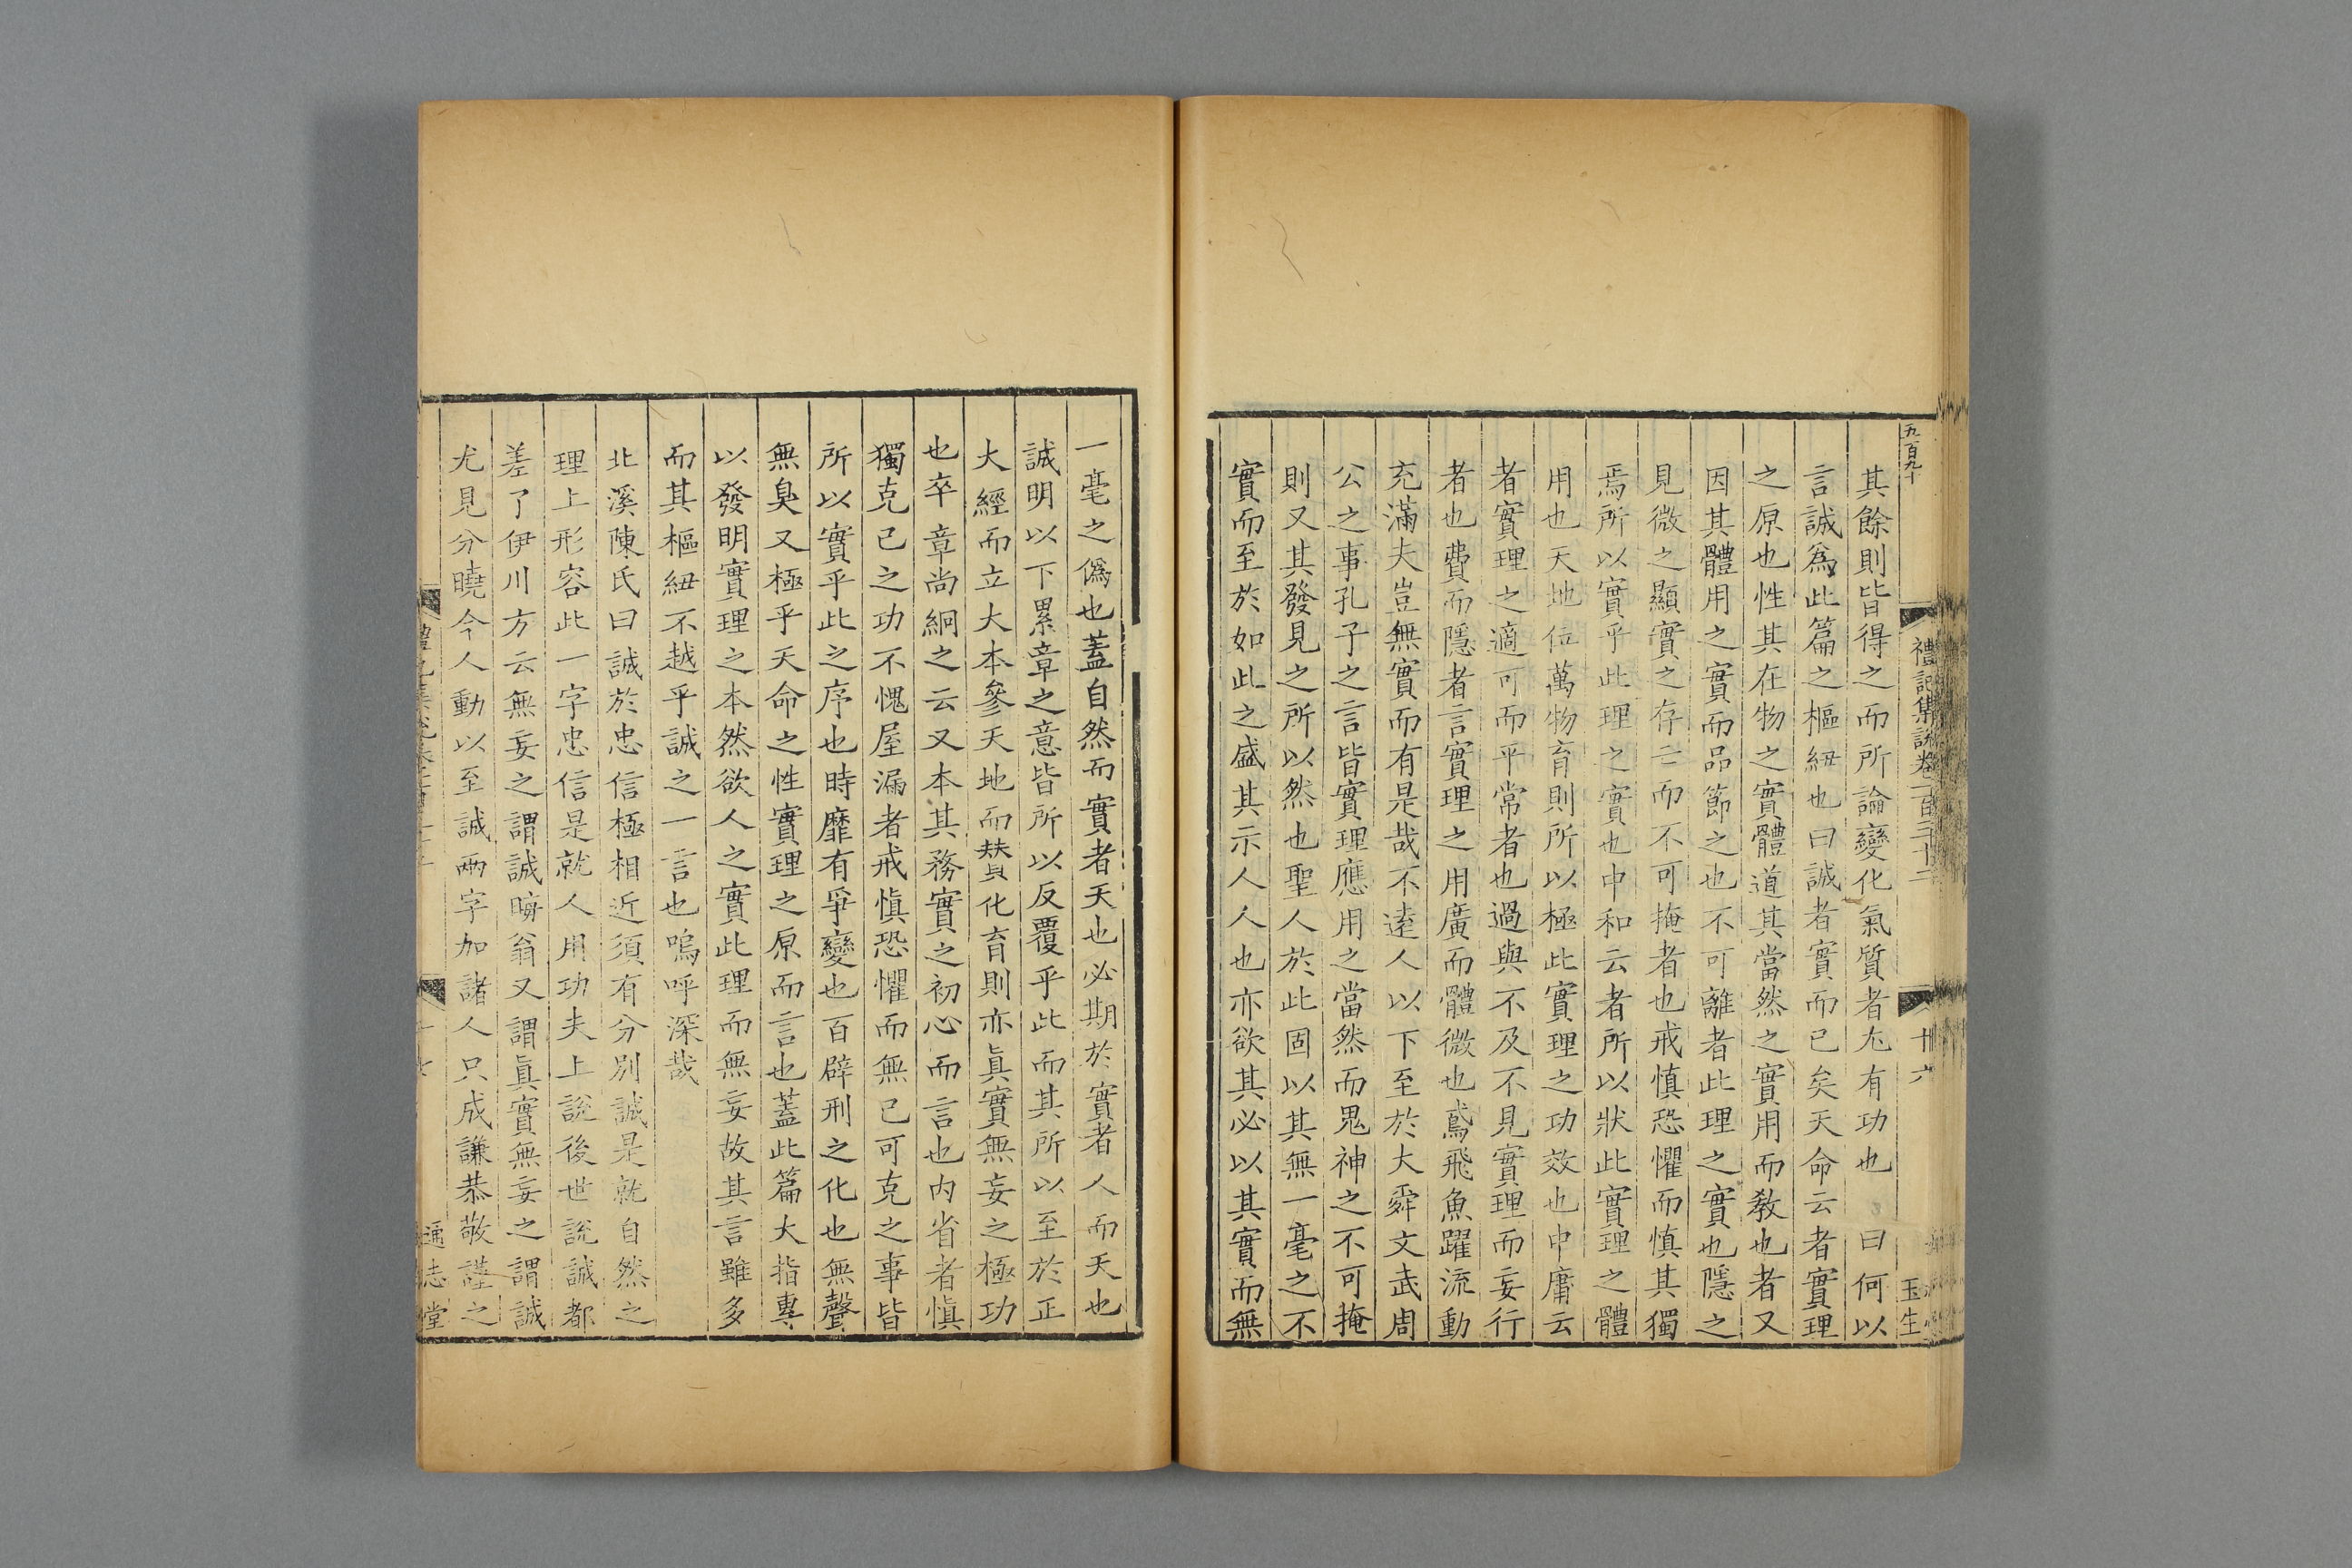 五百九十
禮記集說卷一百三十二
廿六
玉生
其餘則皆得之而所論變化氣質者尤有功也曰何以
言誠爲此篇之樞紐也曰誠者實而已矣天命云者實理
之原也性其在物之實體道其當然之實用而敎也者又
因其體用之實而品節之也不可離者此理之實也隱之
見微之顯實之存亡而不可掩者也戒愼恐懼而愼其獨
焉所以實乎此理之實也中和云者所以狀此實理之體
用也天地位萬物育則所以極此實理之功效也中庸云
者實理之適可而平常者也過與不及不見實理而妄行
者也費而隱者言實理之用廣而體微也鳶飛魚躍流動
充滿夫豈無實而有是哉不遠人以下至於大舜文武周
公之事孔子之言皆實理應用之當然而鬼神之不可掩
則又其發見之所以然也聖人於此固以其無一毫之不
實而至於如此之盛其示人人也亦欲其必以其實而無
一毫之僞也蓋自然而實者天也必期於實者人而天也
誠明以下累章之意皆所以反覆乎此而其所以至於正
大經而立大本參天地而賛化育則亦眞實無妄之極功
也卒章尚絅之云又本其務實之初心而言也内省者愼
獨克己之功不愧屋漏者戒愼恐懼而無已可克之事皆
所以實乎此之序也時靡有爭變也百辟刑之化也無聲
無臭又極乎天命之性實理之原而言也蓋此篇大指專
以發明實理之本然欲人之實此理而無妄故其言雖多
而其樞紐不越乎誠之一言也嗚呼深哉
北溪陳氏曰誠於忠信極相近須有分別誠是就自然之
理上形容此一字忠信是就人用功夫上說後世說誠都
差了伊川方云無妄之謂誠晦翁又謂眞實無妄之謂誠
尤見分曉今人動以至誠兩字加諸人只成謙恭敬謹之
通志堂